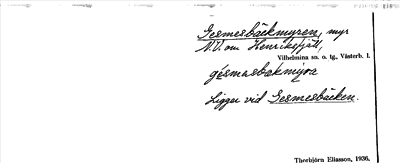 Gesmesbäckmyren, myr
N.V. om Henriksfjäll,
Vilhelmina sn. o. tg, Västerb. l.
gésmasbakmýra
Ligger vid Gesmesbäcken.
Thorbjörn Eliasson, 1936.